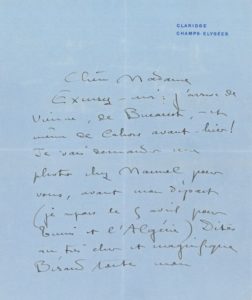 CLARIDGE
CHAMPS-ELYSÉES
Chère Madame
Excusez-moi: j'arrive de
Vienne, de Bucarest, et
même de Cahors avant-hier!
Je vais demander une
photo chez Manuel pour
vous, avant mon départ
(je repars le 5 avril pour
Tunis et l'Algérie) Dites
au très cher et magnifique
Béraud toute mon